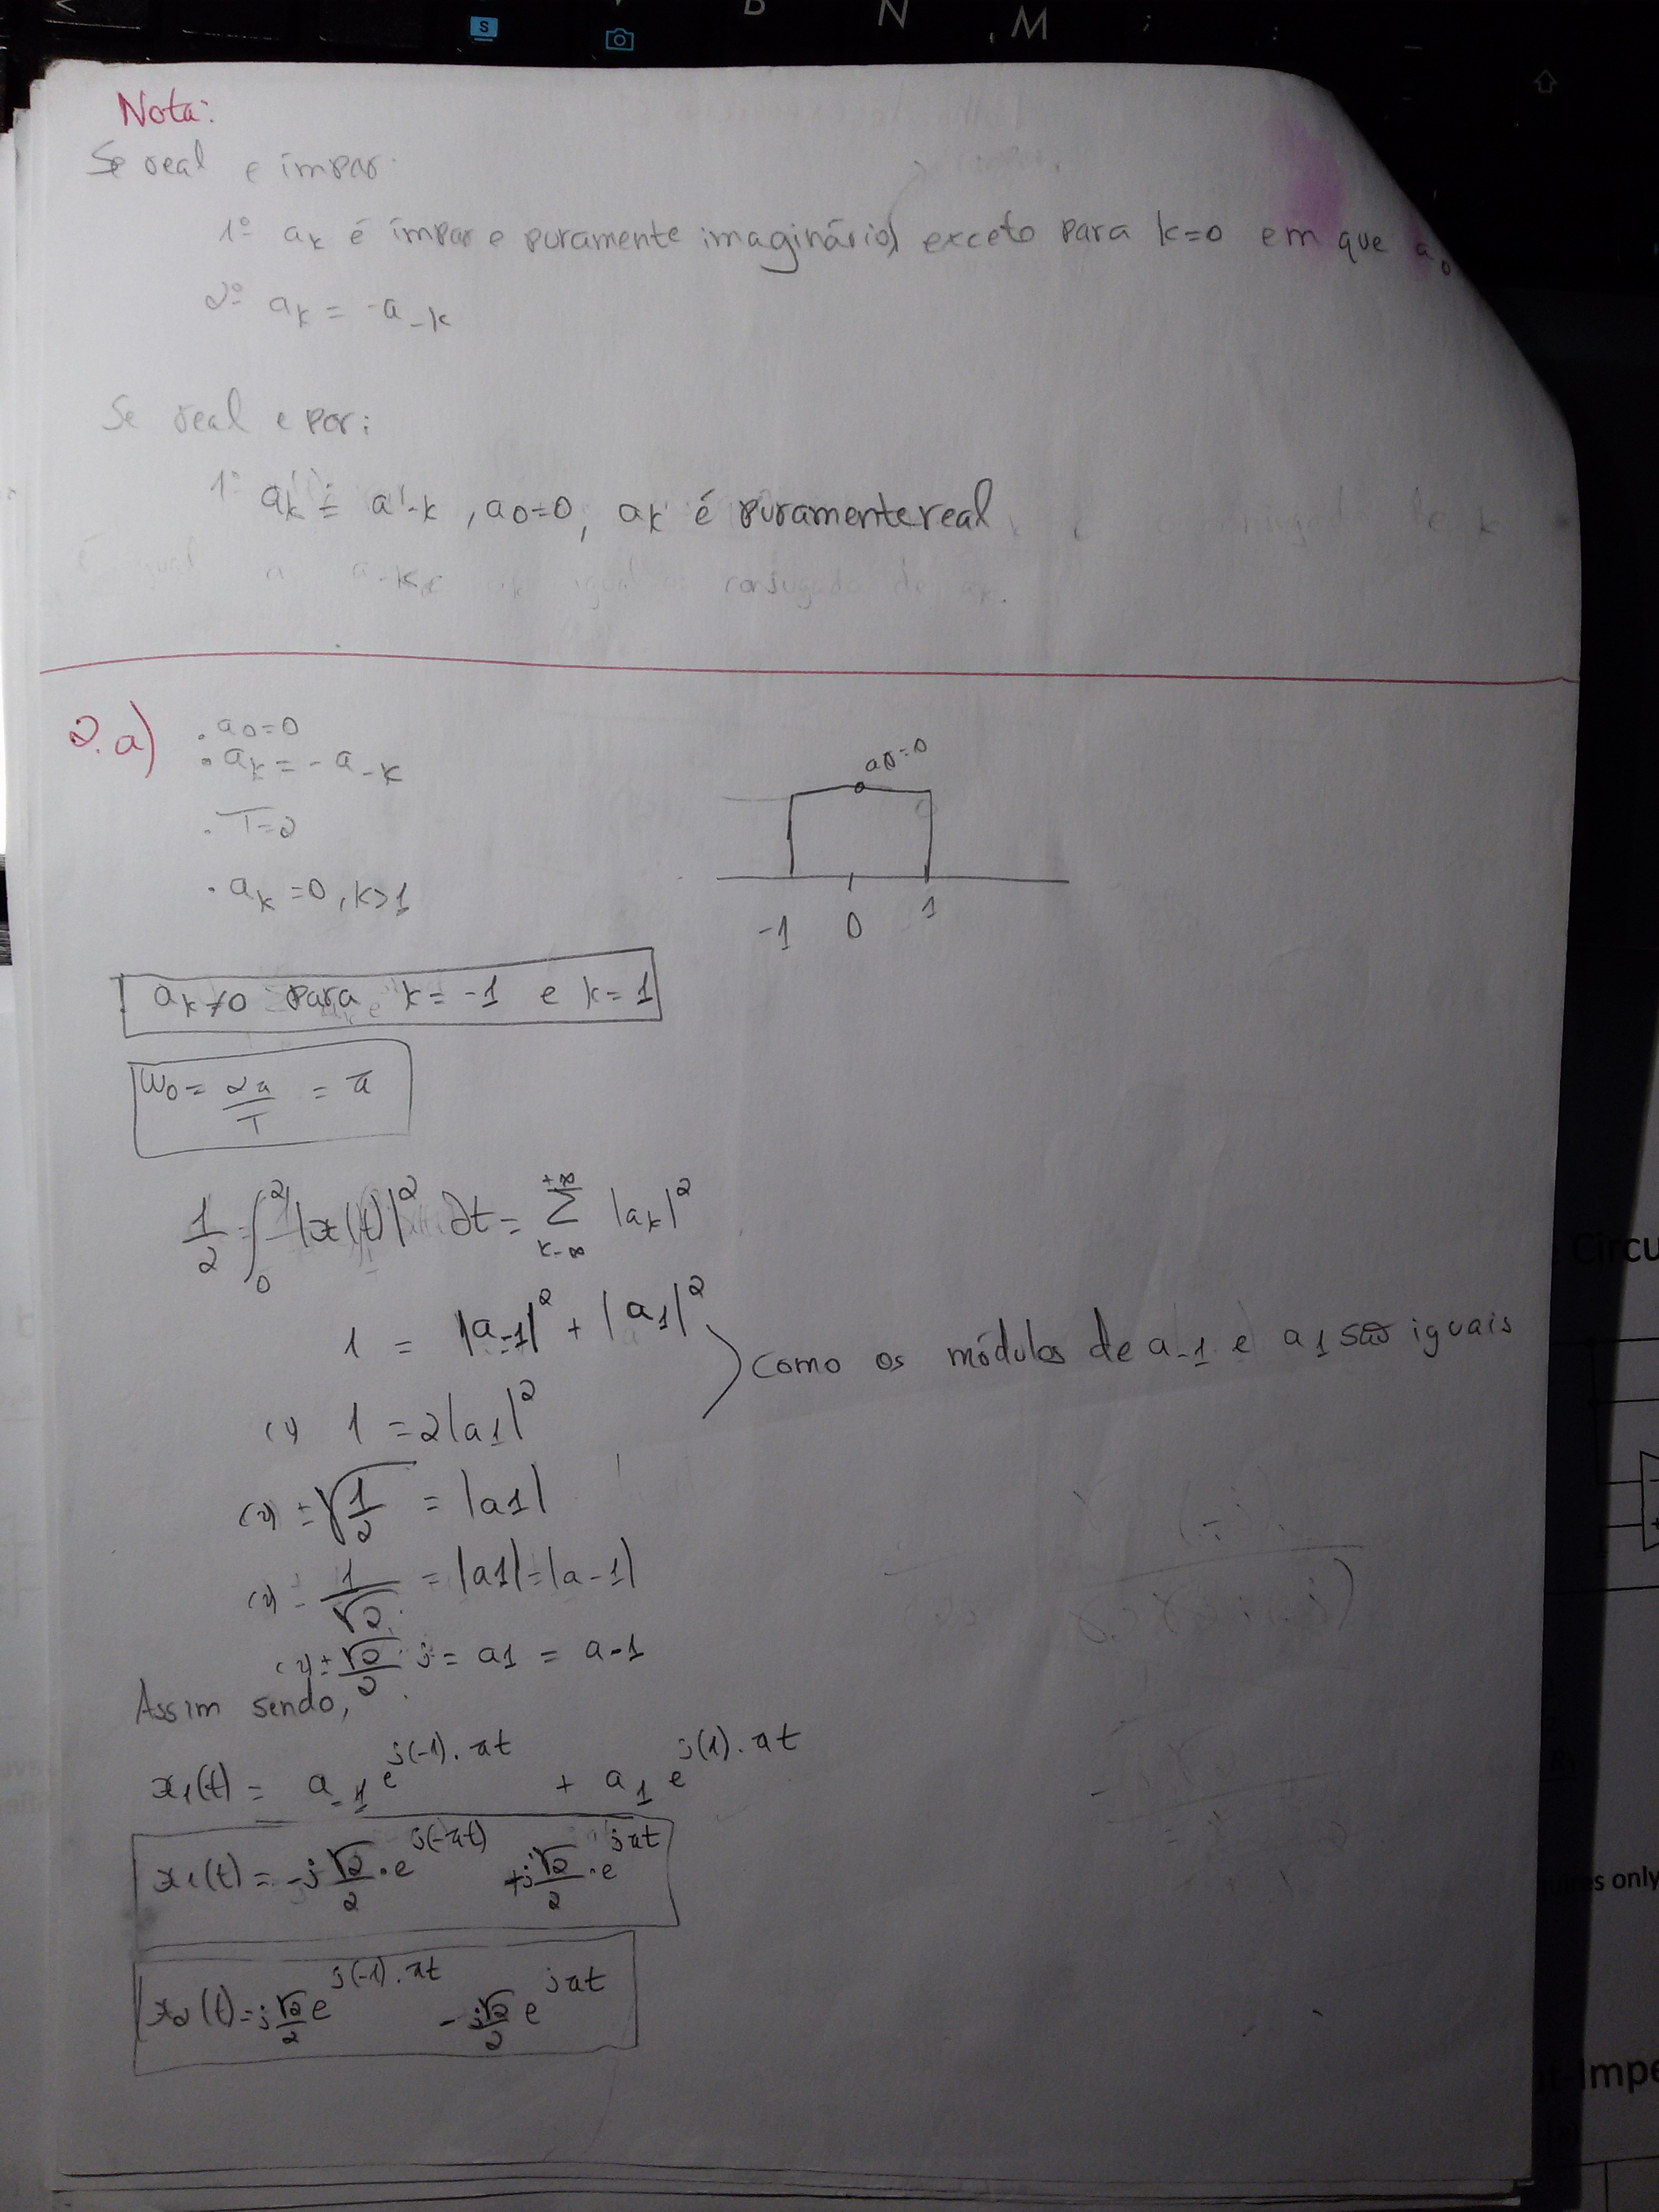 B N M
S
Nota:
Se real e ímpar:
1º ak é ímpar e puramente imaginário, exceto para k=0 em que a0
2º ak = -a-k
Se real e par:
1º ak = a-k , a0=0, ak é puramente real
é igual a-k igual conjugado de ak.
2.a) . a0=0
. ak = - a-k
a0=0
. T=2
. ak =0, k>1
-1 0 1
ak≠0 para k= -1 e k= 1
ω0 = 2π/T = π
1/2 ∫0^2 |x(t)|^2 dt = Σ k-∞ +∞ |ak|^2
1 = |a-1|^2 + |a1|^2
Como os módulos de a-1 e a1 são iguais
(=) 1 = 2|a1|^2
(=) ±√(1/2) = |a1|
(=) 1/√2 = |a1|=|a-1|
(=) ± √2/2 j = a1 = a-1
Assim sendo,
x1(t) = a-1 e^j(-1).πt + a1 e^j(1).πt
x1(t) = -j √2/2 . e^j(-πt) +j √2/2 . e^jπt
x2(t) = j √2/2 e^j(-1).πt - j √2/2 e^jπt
Circu
only
Impe